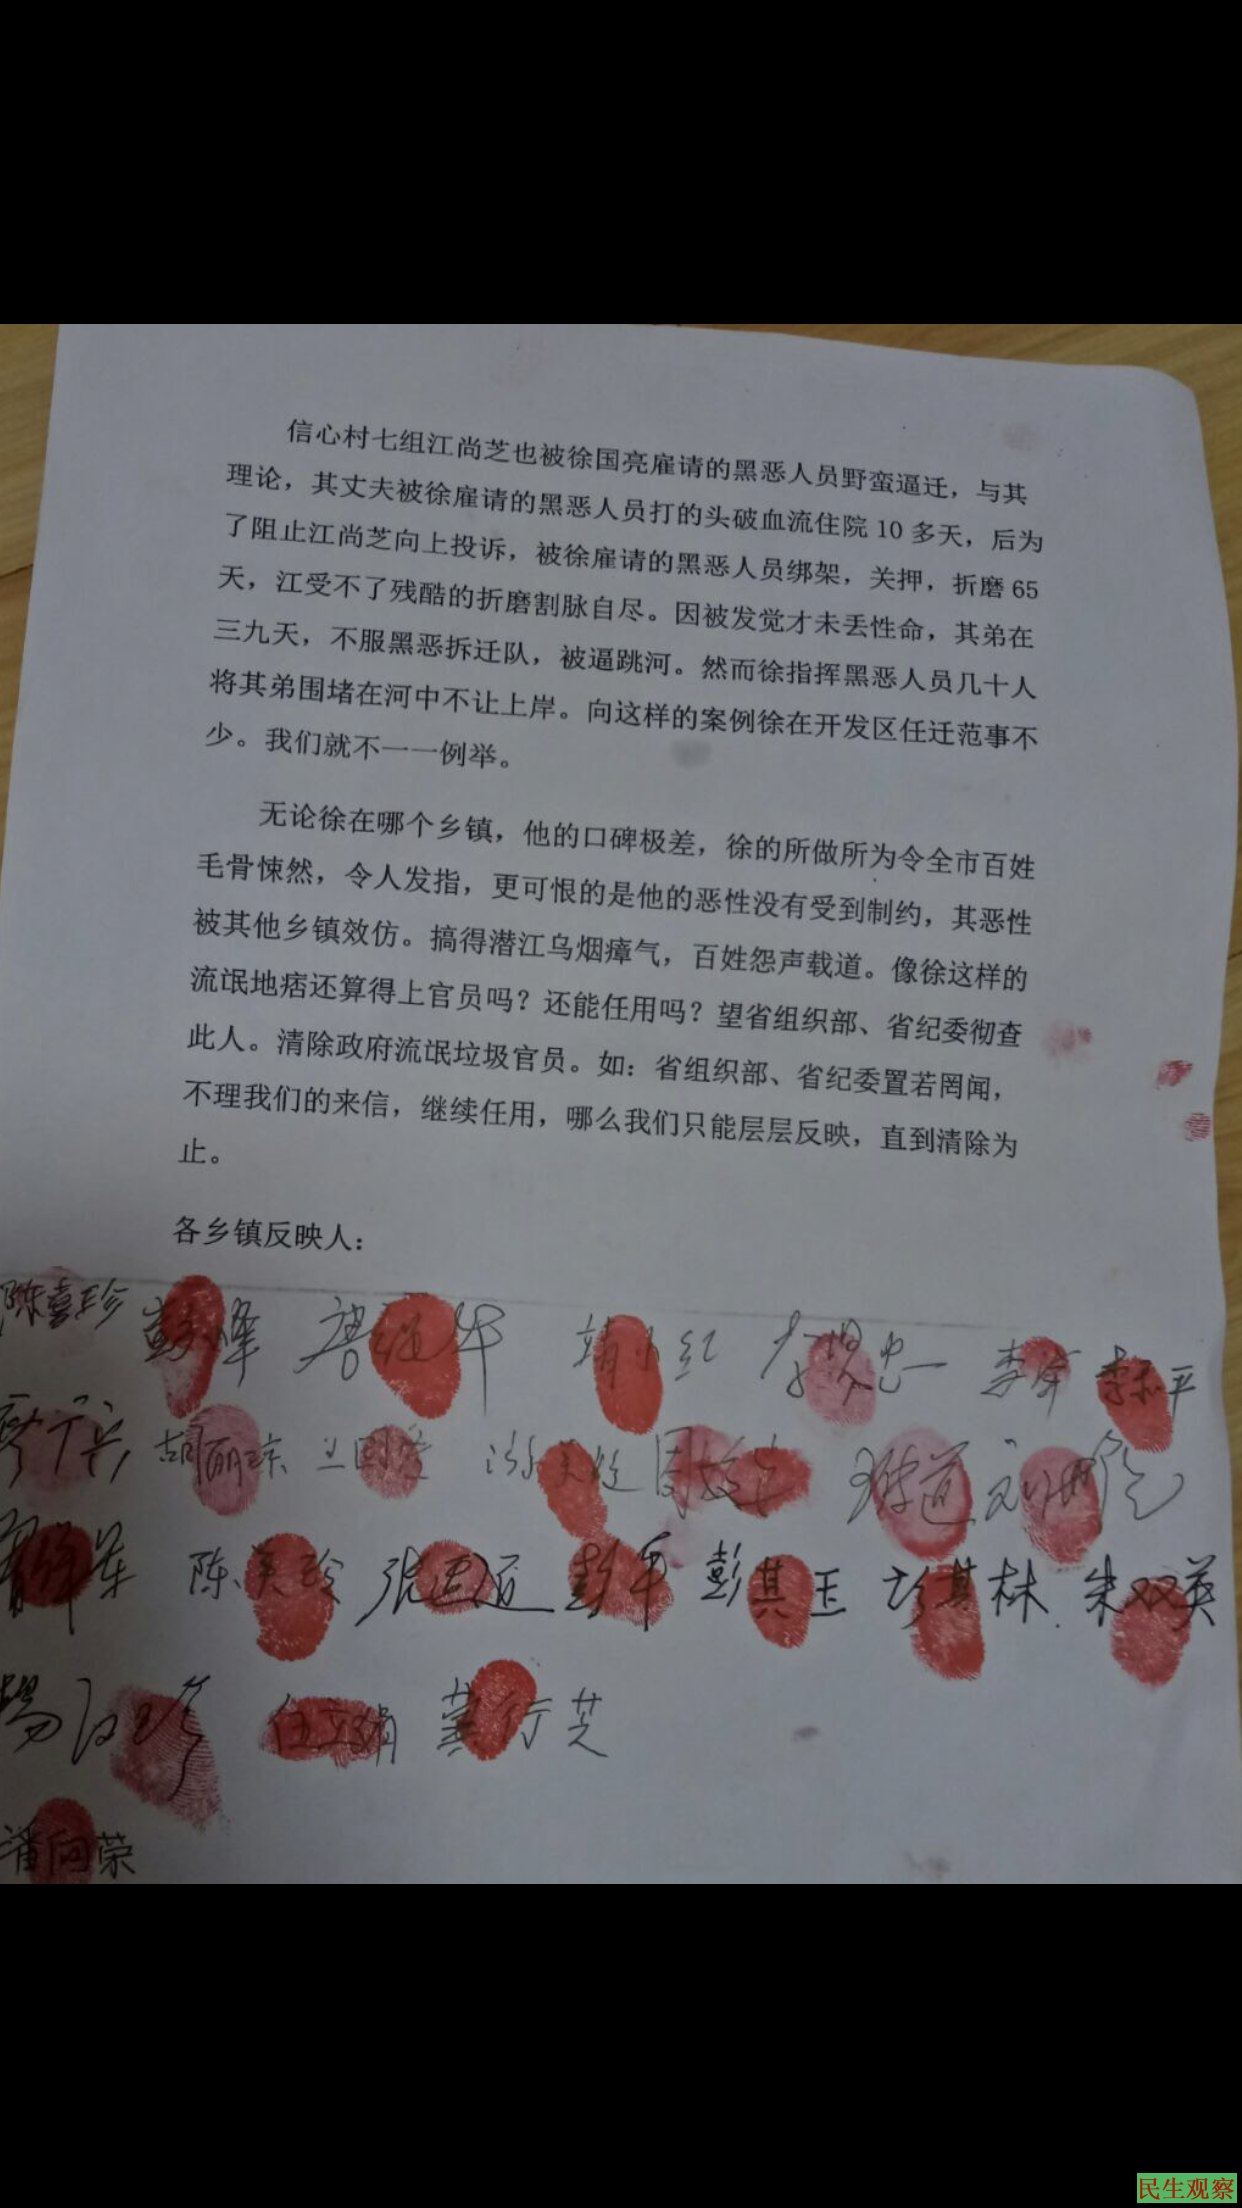 信心村七组江尚芝也被徐国亮雇请的黑恶人员野蛮逼迁，与其
理论，其丈夫被徐雇请的黑恶人员打的头破血流住院 10 多天，后为
了阻止江尚芝向上投诉，被徐雇请的黑恶人员绑架，关押，折磨 65
天，江受不了残酷的折磨割脉自尽。因被发觉才未丢性命，其弟在
三九天，不服黑恶拆迁队，被逼跳河。然而徐指挥黑恶人员几十人
将其弟围堵在河中不让上岸。向这样的案例徐在开发区任迁范事不
少。我们就不一一例举。
无论徐在哪个乡镇，他的口碑极差，徐的所做所为令全市百姓
毛骨悚然，令人发指，更可恨的是他的恶性没有受到制约，其恶性
被其他乡镇效仿。搞得潜江乌烟瘴气，百姓怨声载道。像徐这样的
流氓地痞还算得上官员吗？还能任用吗？望省组织部、省纪委彻查
此人。清除政府流氓垃圾官员。如：省组织部、省纪委置若罔闻，
不理我们的来信，继续任用，哪么我们只能层层反映，直到清除为
止。
各乡镇反映人：
陈喜珍 靖小红 李平
胡丽琼
陈美玲 彭军 彭其玉 彭其林 朱双英
任立娟 龚行芝
潘向荣
民生观察